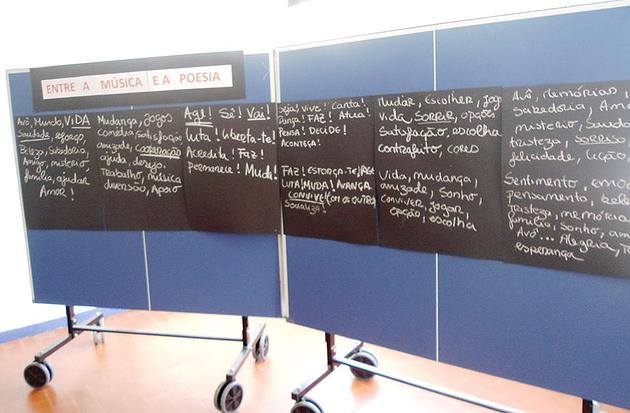 ENTRE A MÚSICA E A POESIA
Avô, Mundo, VIDA
Saudade, esforço
Beleza, Sabedoria
Amigo, mistério
família, ajudar
Amor!
Mudança, jogos
comédia, satisfação
amizade, cooperação
ajuda, desejo
Trabalho, música
diversão, Apoio
Age! Sê! Vai!
Luta! Liberta-te!
Acredita! Faz!
Permanece! Muda!
Seja! Vive! Canta!
Dança! FAZ! Atua!
PENSA! DECIDE!
ACONTEÇA!
FAZ! ESFORÇA-TE! Age
LUTA! MUDA! AVANÇA
CONVIVE! COM OS OUTROS
Socializa!
Mudar, Escolher, jog
vida, SORRIR, opções
Satisfação, escolha
contrafeito, cores
Vida, mudança,
amizade, Sonho,
conviver, jogar,
opção, escolha
Avô, memórias,
Sabedoria, Amo
mistério, Saud
tristeza, sorris
felicidade, lição,
Sentimento, emoc
pensamento, bel
Tristeza, memória
família, Sonho, am
Avô... Alegria, T
esperança